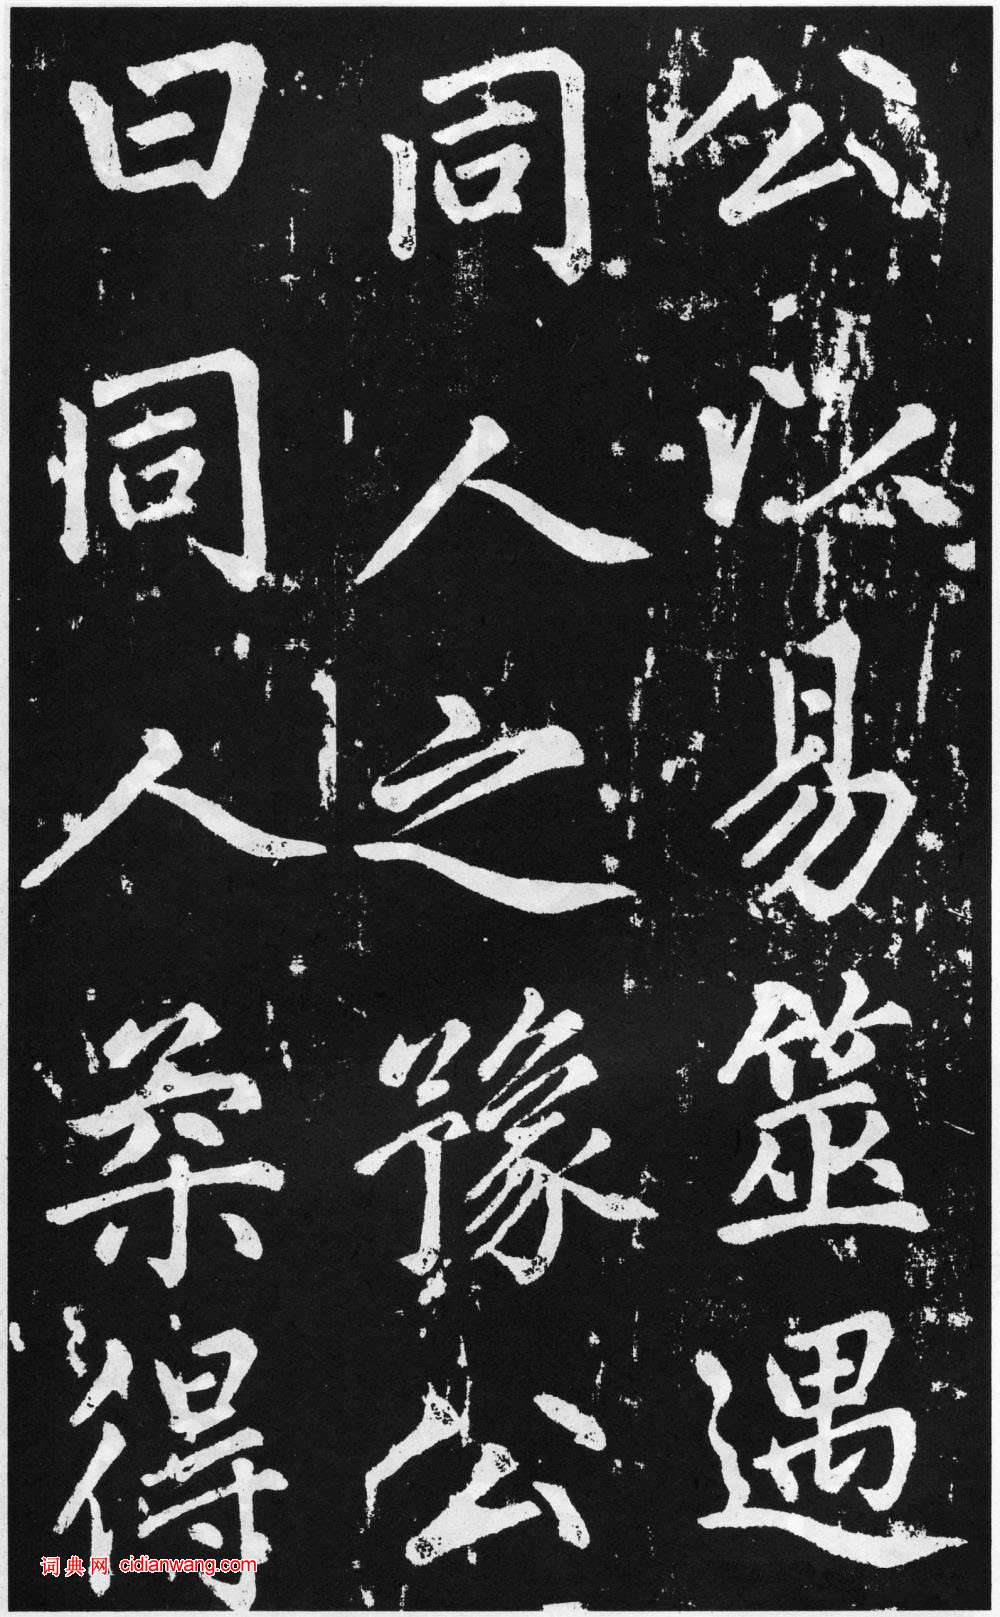 公以易筮遇
同人之豫公
曰同人柔得
词典网 cidianwang.com